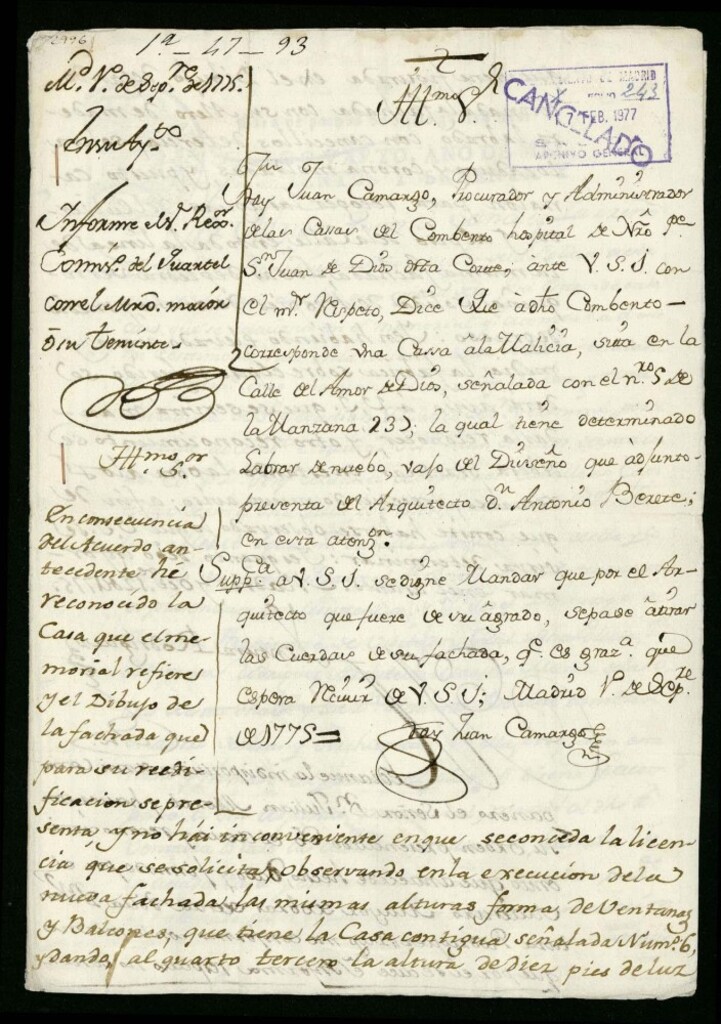 1ª-47-93
Mᵈ. 1º. de Sepʳᵉ. de 1775.
En su Ayᵗᵒ
Informe el Sʳ. Regᵒʳ
Comisº. del Quartel
con el Mrô. maior
ô su teniente.
Illᵐᵒ Sʳ
MADRID
FOLIO 243
CANCELADO
7 FEB. 1977
ARCHIVO GENERAL
Fray Juan Camargo, Procurador y Administrador
de las Casas del Combento hospital de Nrô Pᵉ.
Sⁿ. Juan de Dios desta Corte, ante V. S. I. con
el mʳ. Respeto, Dice Que â dhô Combento
corresponde vna Cassa âla Malicia, sita en la
Calle del Amor de Dios, señalada con el nʳᵒ 5 de
la Manzana 235, la qual tiene determinado
Labrar de nuebo, vajo del Diuseño que âdjunto
presenta del Arquitecto Dⁿ. Antonio Berete;
en esta atenzᵒⁿ.
Suppᶜᵃ. a V. S. I. se digne Mandar que por el Ar-
quitecto que fuere de su âgrado, sepase âtirar
las Cuerdas de su fachada, qᵉ. es grazª. que
espera Reciuir de V. S. I; Madrid 1º. de Sepᵗʳᵉ.
de 1775=
Fray Juan Camargo
Illᵐᵒ Sᵒʳ.
En consecuencia
del Acuerdo an-
tecedente hé
reconocido la
Casa que el me-
morial refiere
y el Dibujo de
la fachada que
para su reedi-
ficacion se pre-
senta, y no hái inconveniente en que se conceda la licen-
cia que se solicita, observando en la execucion de la
nueva fachada, las mismas alturas forma de Ventanas
y Balcones, que tiene la Casa contigua señalada Numº. 6,
y dando, al quarto tercero la altura de diez pies de luz